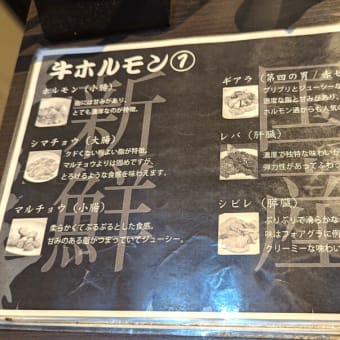 牛ホルモン①
ホルモン（小腸）
脂には甘みがあり、
とても濃厚なのが特徴。
シマチョウ（大腸）
クドくない程よい脂が特徴。
マルチョウよりは固めですが、
とろけるような食感を味わえます。
マルチョウ（小腸）
柔らかくてぷるぷるとした食感。
甘みのある脂がつまっていてジューシー。
ギアラ（第四の胃/赤セ
プリプリとジューシーな
適度な脂と甘みがあり
ホルモン通からも人気の
レバ（肝臓）
濃厚で独特な味わいが
弾力性があってふわ
シビレ（膵臓）
ぷりぷりで滑らかな
味はフォアグラに例
クリーミーな味わい
新鮮
国産